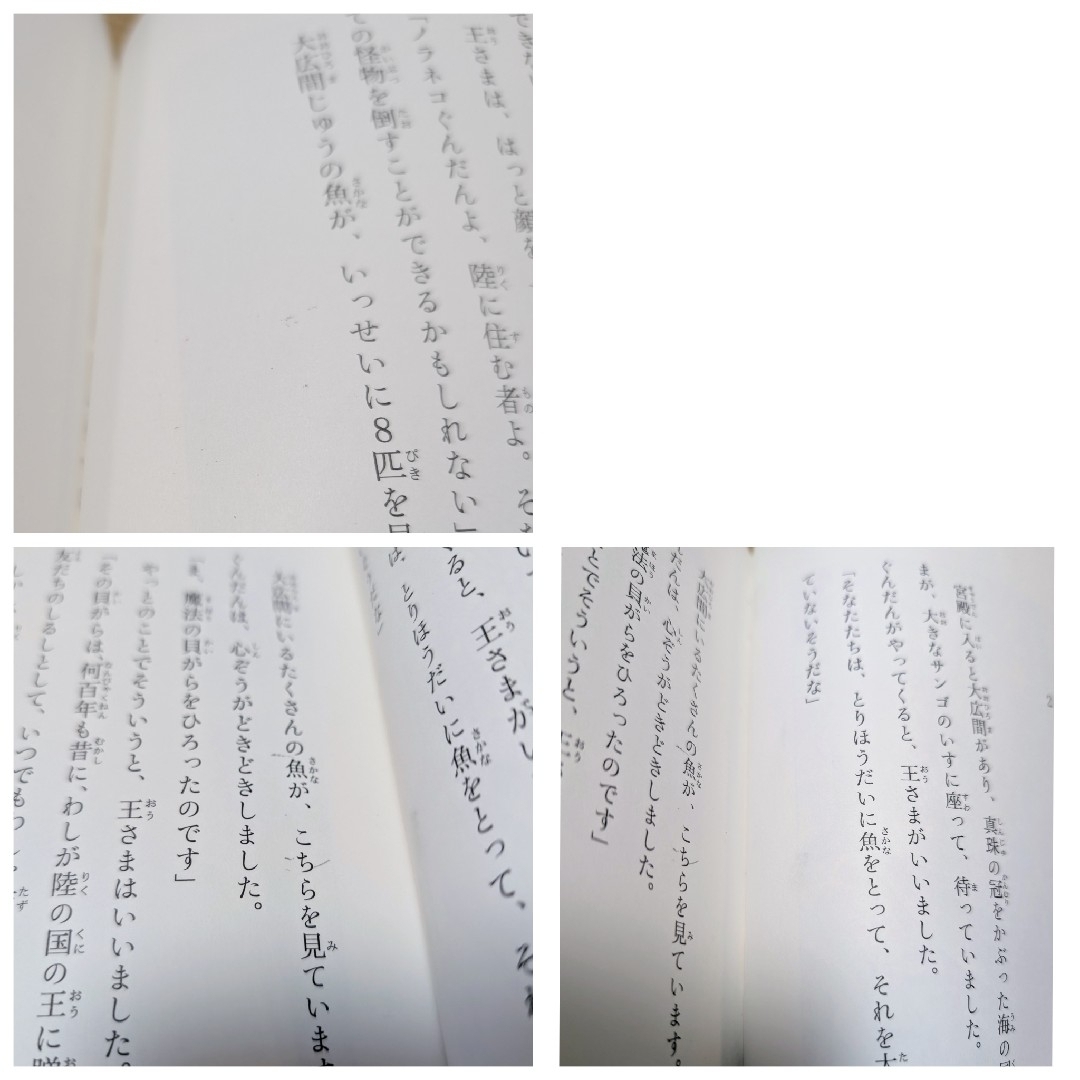 王さまは、はっと顔を
「ノラネコぐんだんよ、陸に住む者よ。そ
ての怪物を倒すことができるかもしれない」
大広間じゅうの魚が、いっせいに8匹を
ると、王さまがい
は、とりほうだいに魚をとって、そ
大広間にいるたくさんの魚が、こちらを見ていま
ぐんだんは、心ぞうがどきどきしました。
「ま、魔法の貝がらをひろったのです」
やっとのことでそういうと、王さまはいいました。
「その貝がらは、何百年も昔に、わしが陸の国の王に贈
しるしとして、いつでも
宮殿に入ると大広間があり、真珠の冠をかぶった海の
まが、大きなサンゴのいすに座って、待っていました。
ぐんだんがやってくると、王さまがいいました。
「そなたたちは、とりほうだいに魚をとって、それを大
ていないそうだな」
大広間にいるたくさんの魚が、こちらを見ています。
んだんは、心ぞうがどきどきしました。
法の貝がらをひろったのです」
とでそういうと、